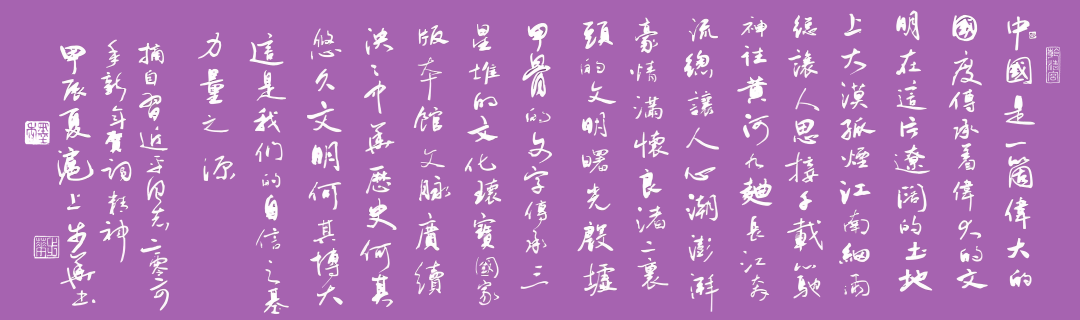 中國是一箇偉大的
國度傳承着偉大的文
明在這片遼闊的土地
上大漠孤煙江南細雨
總讓人思接千載心馳
神往黄河九曲長江奔
流總讓人心潮澎湃
豪情滿懷良渚二裏
頭的文明曙光殷墟
甲骨的文字傳承三
星堆的文化瓌寶國家
版本館文脈賡續
泱〻中華歷史何其
悠久文明何其博大
這是我們的自信之基
力量之源
摘自習近平同志二零二四
年新年賀詞精神
甲辰夏滬上華書